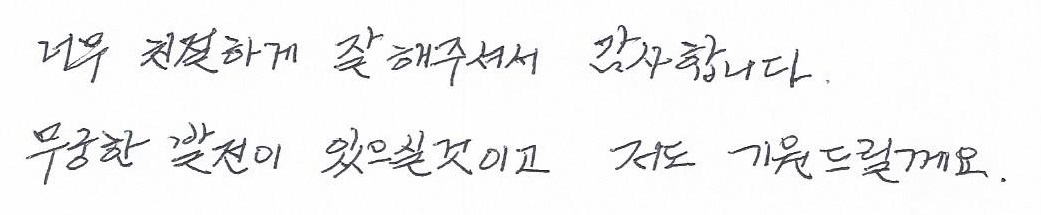 너무 친절하게 잘 해주셔서 감사합니다.
무궁한 발전이 있으실것이고 저도 기원드릴께요.